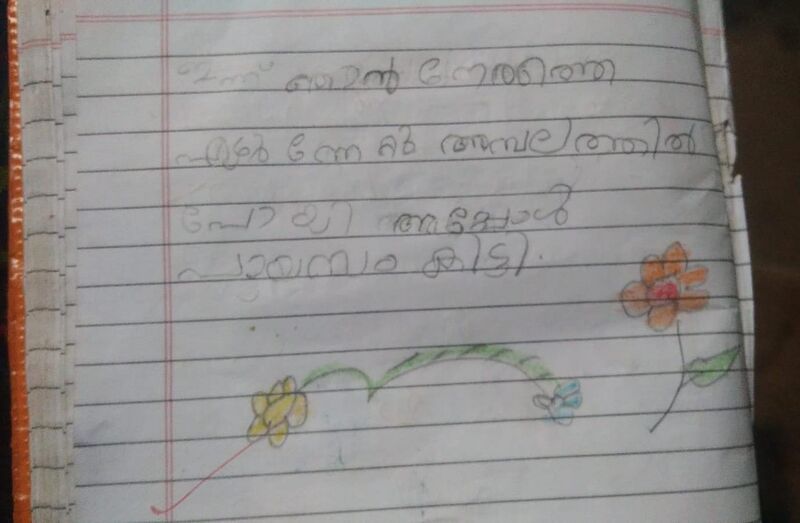 ഇന്ന് ഞാൻ നേരത്തെ
എഴുന്നേറ്റു അമ്പലത്തിൽ
പോയി അപ്പോൾ
പായസം കിട്ടി.